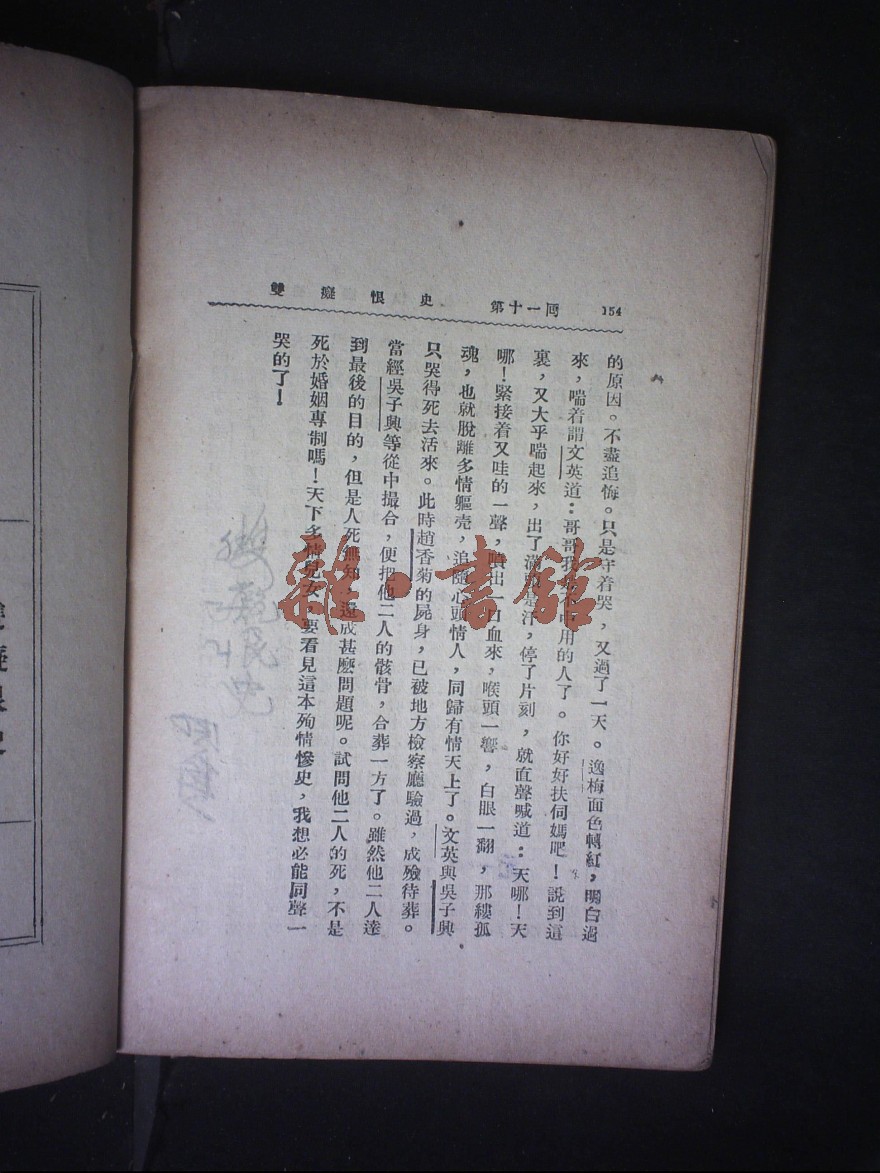 雙癡恨史 第十一回 154
的原因。不盡追悔。只是守着哭，又過了一天。逸梅面色轉紅，明白過
來，喘着謂文英道：哥哥我 用的人了。你好好扶伺媽吧！說到這
裏，又大乎喘起來，出了滿頭是汗，停了片刻，就直聲喊道：天哪！天
哪！緊接着又哇的一聲，噴出一口血來，喉頭一響，白眼一翻，那縷孤
魂，也就脫離多情軀壳，追隨心頭情人，同歸有情天上了。文英與吳子興
只哭得死去活來。此時趙香菊的屍身，已被地方檢察廳驗過，成殮待葬。
當經吳子興等從中撮合，便把他二人的骸骨，合葬一方了。雖然他二人達
到最後的目的，但是人死無知，還成甚麽問題呢。試問他二人的死，不是
死於婚姻專制嗎！天下多情兒女，要看見這本殉情慘史，我想必能同聲一
哭的了！
雜·書館
雙癡恨史